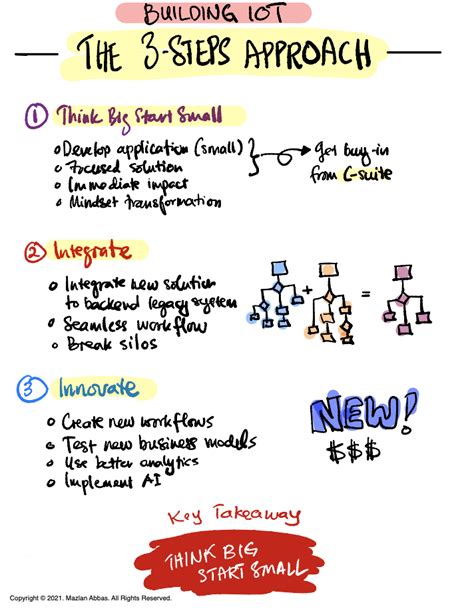 BUILDING IOT
THE 3-STEPS APPROACH
1 Think Big Start Small
Develop application (small)
Focused solution
Immediate impact
Mindset transformation
get buy-in
from C-suite
2 Integrate
Integrate new solution
to backend legacy system
Seamless workflow
Break silos
+ =
3 Innovate
Create new workflows
Test new business models
Use better analytics
Implement AI
NEW!
$$$
Key Takeaway
THINK BIG
START SMALL
Copyright © 2021. Mazlan Abbas. All Rights Reserved.